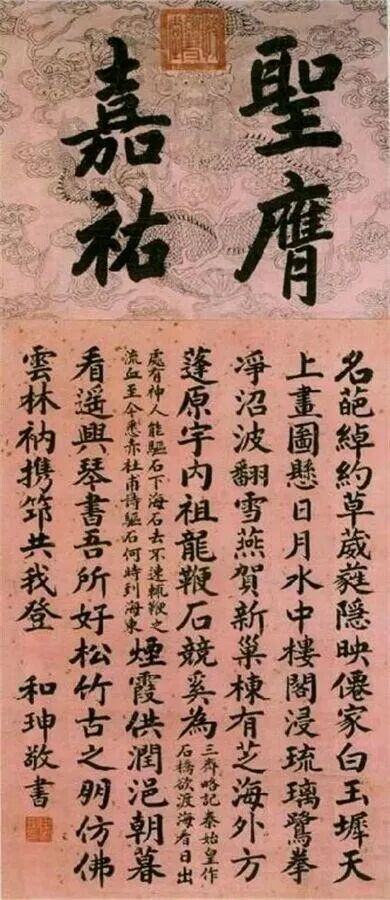 聖膺
嘉祐
名葩綽約草葳蕤隱映僊家白玉墀天
上畫圖懸日月水中樓閣浸琉璃鷺拳
淨沼波翻雪燕賀新巢棟有芝海外方
蓬原宇內祖龍鞭石競奚為
三齊略記秦始皇作
石橋欲渡海看日出
處有神人能驅石下海石去不速輒鞭之
流血至今悉赤杜甫詩驅石何時到海東
煙霞供潤浥朝暮
看遙興琴書吾所好松竹古之朋仿佛
雲林衲携筇共我登
和珅敬書